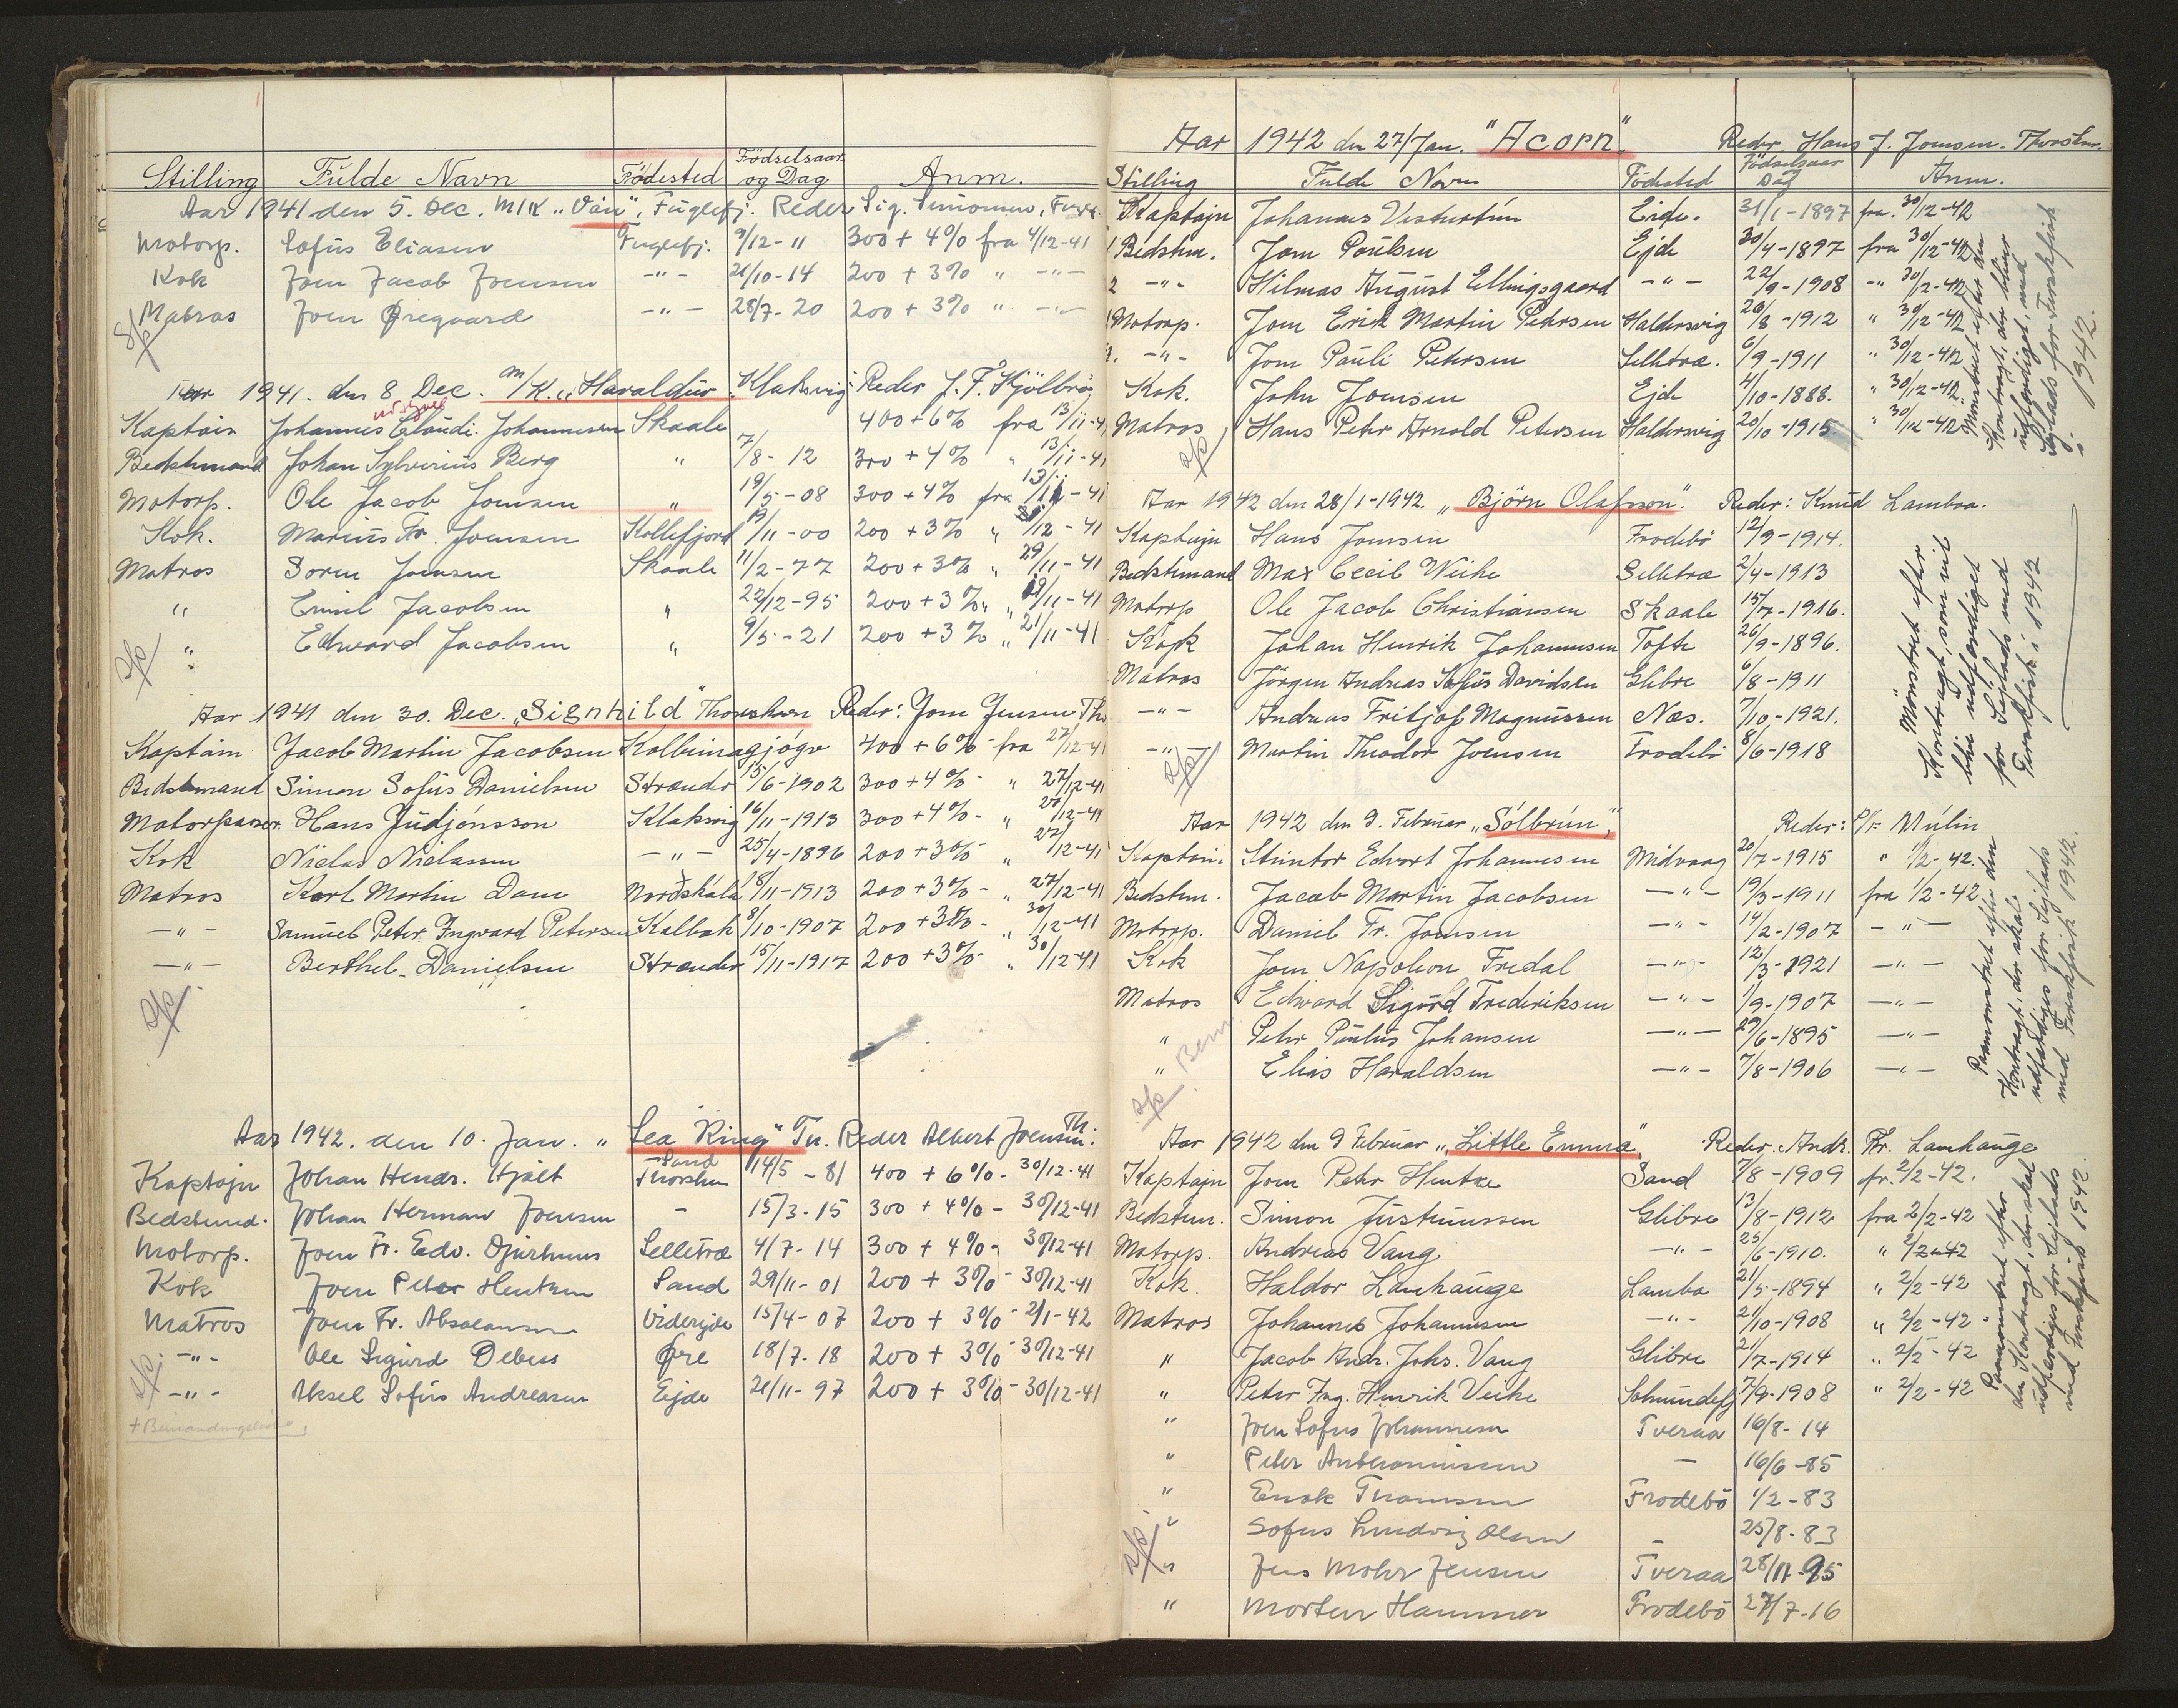 Stilling Fulde Navn Födested Födselsaar og Dag Anm.
Aar 1941 den 5. Dec. M/K „Ván“, Fuglefj. Reder Sig. Simonsen, Fugl.
Motorp. Sofus Eliasen Fuglefj. 9/12-11 300 + 4% fra 4/12-41
Kok Joen Jacob Joensen -"- 21/10-14 200 + 3% " -"-
Matros Joen Øregaard -"- 28/7-20 200 + 3% " -"-
Aar 1941. den 8 Dec. M/K. „Haraldur“ Klaksvig Reder J. F. Kjölbro
Kaptain Johannes Claudi Johannesen Skaale 400 + 6% fra 13/11-41
Bedstemand Johan Sylverius Berg " 7/8-12 300 + 4% " 13/11-41
Motorp. Ole Jacob Joensen " 19/5-08 300 + 4% fra 13/11-41
Kok. Marius Fr. Joensen Kollefjord 19/11-00 200 + 3% " /12-41
Matros Soren Joensen Skaale 11/2-77 200 + 3% " 29/11-41
" Emil Jacobsen " 22/12-95 200 + 3% " /11-41
" Edward Jacobsen " 9/5-21 200 + 3% " 21/11-41
Aar 1941 den 30. Dec. „Signhild“ Thorshavn Reder: Joen Jensen Th
Kaptain Jacob Martin Jacobsen Kolbeinagjógv 400 + 6% fra 27/12-41
Bedstemand Simon Sofus Danielsen Strænder 15/6-1902 300 + 4% - " 27/12-41
Motorpasser Hans Judjónsson Klaksvig 16/11-1913 300 + 4% - " 27/12-41
Kok Niclas Niclassen -"- 25/4-1896 200 + 3% - " 27/12-41
Matros Karl Martin Dam Nordskála 18/11-1913 200 + 3% - " 27/12-41
-"- Samuel Peter Ingvard Petersen Kalbak 8/10-1907 200 + 3% - " 30/12-41
-"- Berthel Danielsen Strænder 15/11-1917 200 + 3% - " 30/12-41
Aar 1942. den 10. Jan. „Sea King“ Tn. Reder Albert Joensen Th.
Kaptajn Johan Hendr. Hjalt Sand Thorshn 14/5-81 400 + 6% - 30/12-41
Bedstmd. Johan Herman Joensen - 15/3-15 300 + 4% - 30/12-41
Motorp. Joen Fr. Edv. Djurhuus Selletræ 4/7-14 300 + 4% - 30/12-41
Kok Joen Peter Hentzen Sand 29/11-01 200 + 3% - 30/12-41
Matros Joen Fr. Absalonsen Videreide 15/4-07 200 + 3% - 2/1-42
-"- Ole Sigurd Debess Øre 18/7-18 200 + 3% - 30/12-41
-"- Aksel Sofus Andreasen Ejde 21/11-97 200 + 3% - 30/12-41
Aar 1942 den 27/Jan. "Acorn" Reder Hans J. Joensen. Thorshn.
Stilling Fulde Navn Födested Födselsaar Dag Anm.
Kaptajn Johannes Vesturtún Eide. 31/1-1897 fra. 30/12-42
1 Bedstm. Joen Poulsen Ejde 30/4-1897 fra 30/12-42
2 -"- Hilmar August Ellingsgaard -"- 22/9-1908 -" 30/12-42
1 Motorp. Joen Erik Martin Petersen Haldersvig 26/8-1912 " 30/12-42
2. -"- Joen Pauli Petersen Selletræ. 6/9-1911 " 30/12-42
Kok. John Joensen Ejde 4/10-1888. " 30/12-42
Matros Hans Peter Arnold Petersen Haldersvig 20/10-1915 " 30/12-42
Mönstret efter den
Kontragt, der bliver
udfærdiget, med
Sejlads for Ferskfisk
i 1942.
Aar 1942 den 28/1-1942. „Björn Olafsson“. Reder: Knud Lambaa.
Kaptajn Hans Joensen Frodebö 12/9-1914.
Bedstemand Max Cecil Weihe Selletræ 2/4-1913
Motorp Ole Jacob Christiansen Skaale 15/7-1916.
Kok Johan Henrik Johannesen Tofte 26/9-1896.
Matros Jörgen Andreas Sofus Davidsen Glibre 6/8-1911
-"- Andreas Fritjof Magnussen Næs. 7/10-1921.
-"- Martin Theodor Joensen Frodebö 8/6-1918
Mönstret efter
Kontragt, som vil
blive udfærdiget
for Sejlads med
Ferskfisk i 1942
Aar 1942 den 9. Februar „Sólbrún“, Reder: P/F Múlin
Kaptain. Steintor Edvart Johannesen Midvaag 20/7-1915 " 1/2-42.
Bedstm. Jacob Martin Jacobsen -"- 19/3-1911 fra 1/2-42
Motorp. Daniel Fr. Joensen -"- 14/2-1907 -"-
Kok Joen Napoleon Fredal -"- 12/3-1921 -"-
Matros Edward Sigurd Frederiksen -"- 1/9-1907 -"-
" Peter Paulus Johansen -"- 29/6-1895 -"-
" Elias Haraldsen -"- 7/8-1906 -"-
Paamönstret efter den
Kontragt, der skal
udfærdiges for Sejlads
med Ferskfisk 1942.
Aar 1942 den 9 Februar „Little Emma“ Reder. Andr. Fr. Lamhauge
Kaptajn Joen Peter Hentze Sand 7/8-1909 fr. 2/2-42.
Bedstm. Simon Justinussen Glibre 13/8-1912 fra 2/2-42
Motorp. Andreas Vang -"- 25/6-1910. " 2/2-42
Kok. Haldor Lamhauge Lamba 21/5-1894 " 2/2-42
Matros Johannes Johannesen -"- 21/10-1908 " 2/2-42
" Jacob Andr. Johs. Vang Glibre 21/7-1914 " 2/2-42
" Peter Ing. Henrik Veihe Solmundefj 7/9-1908 " 2/2-42
" Joen Sofus Johannesen Tveraa 16/8-14
" Peter Anthoniussen - 16/6-85
" Enok Thomsen Frodebö 1/2-83
" Sofus Ludvig Olsen - 25/8-83
" Jens Mohr Jensen Tveraa 28/11-95
" Morten Hammer Frodebö 27/7-16
Paamönstret efter
den Kontragt, der skal
udfærdiges for Sejlads
med Ferskfisk 1942.